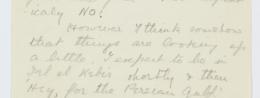 icaly NO!
However I think somehow
that things are cooking up
a little. I expect to be in
Tel el Kebir shortly & then
Hey, for the Persian Gulf